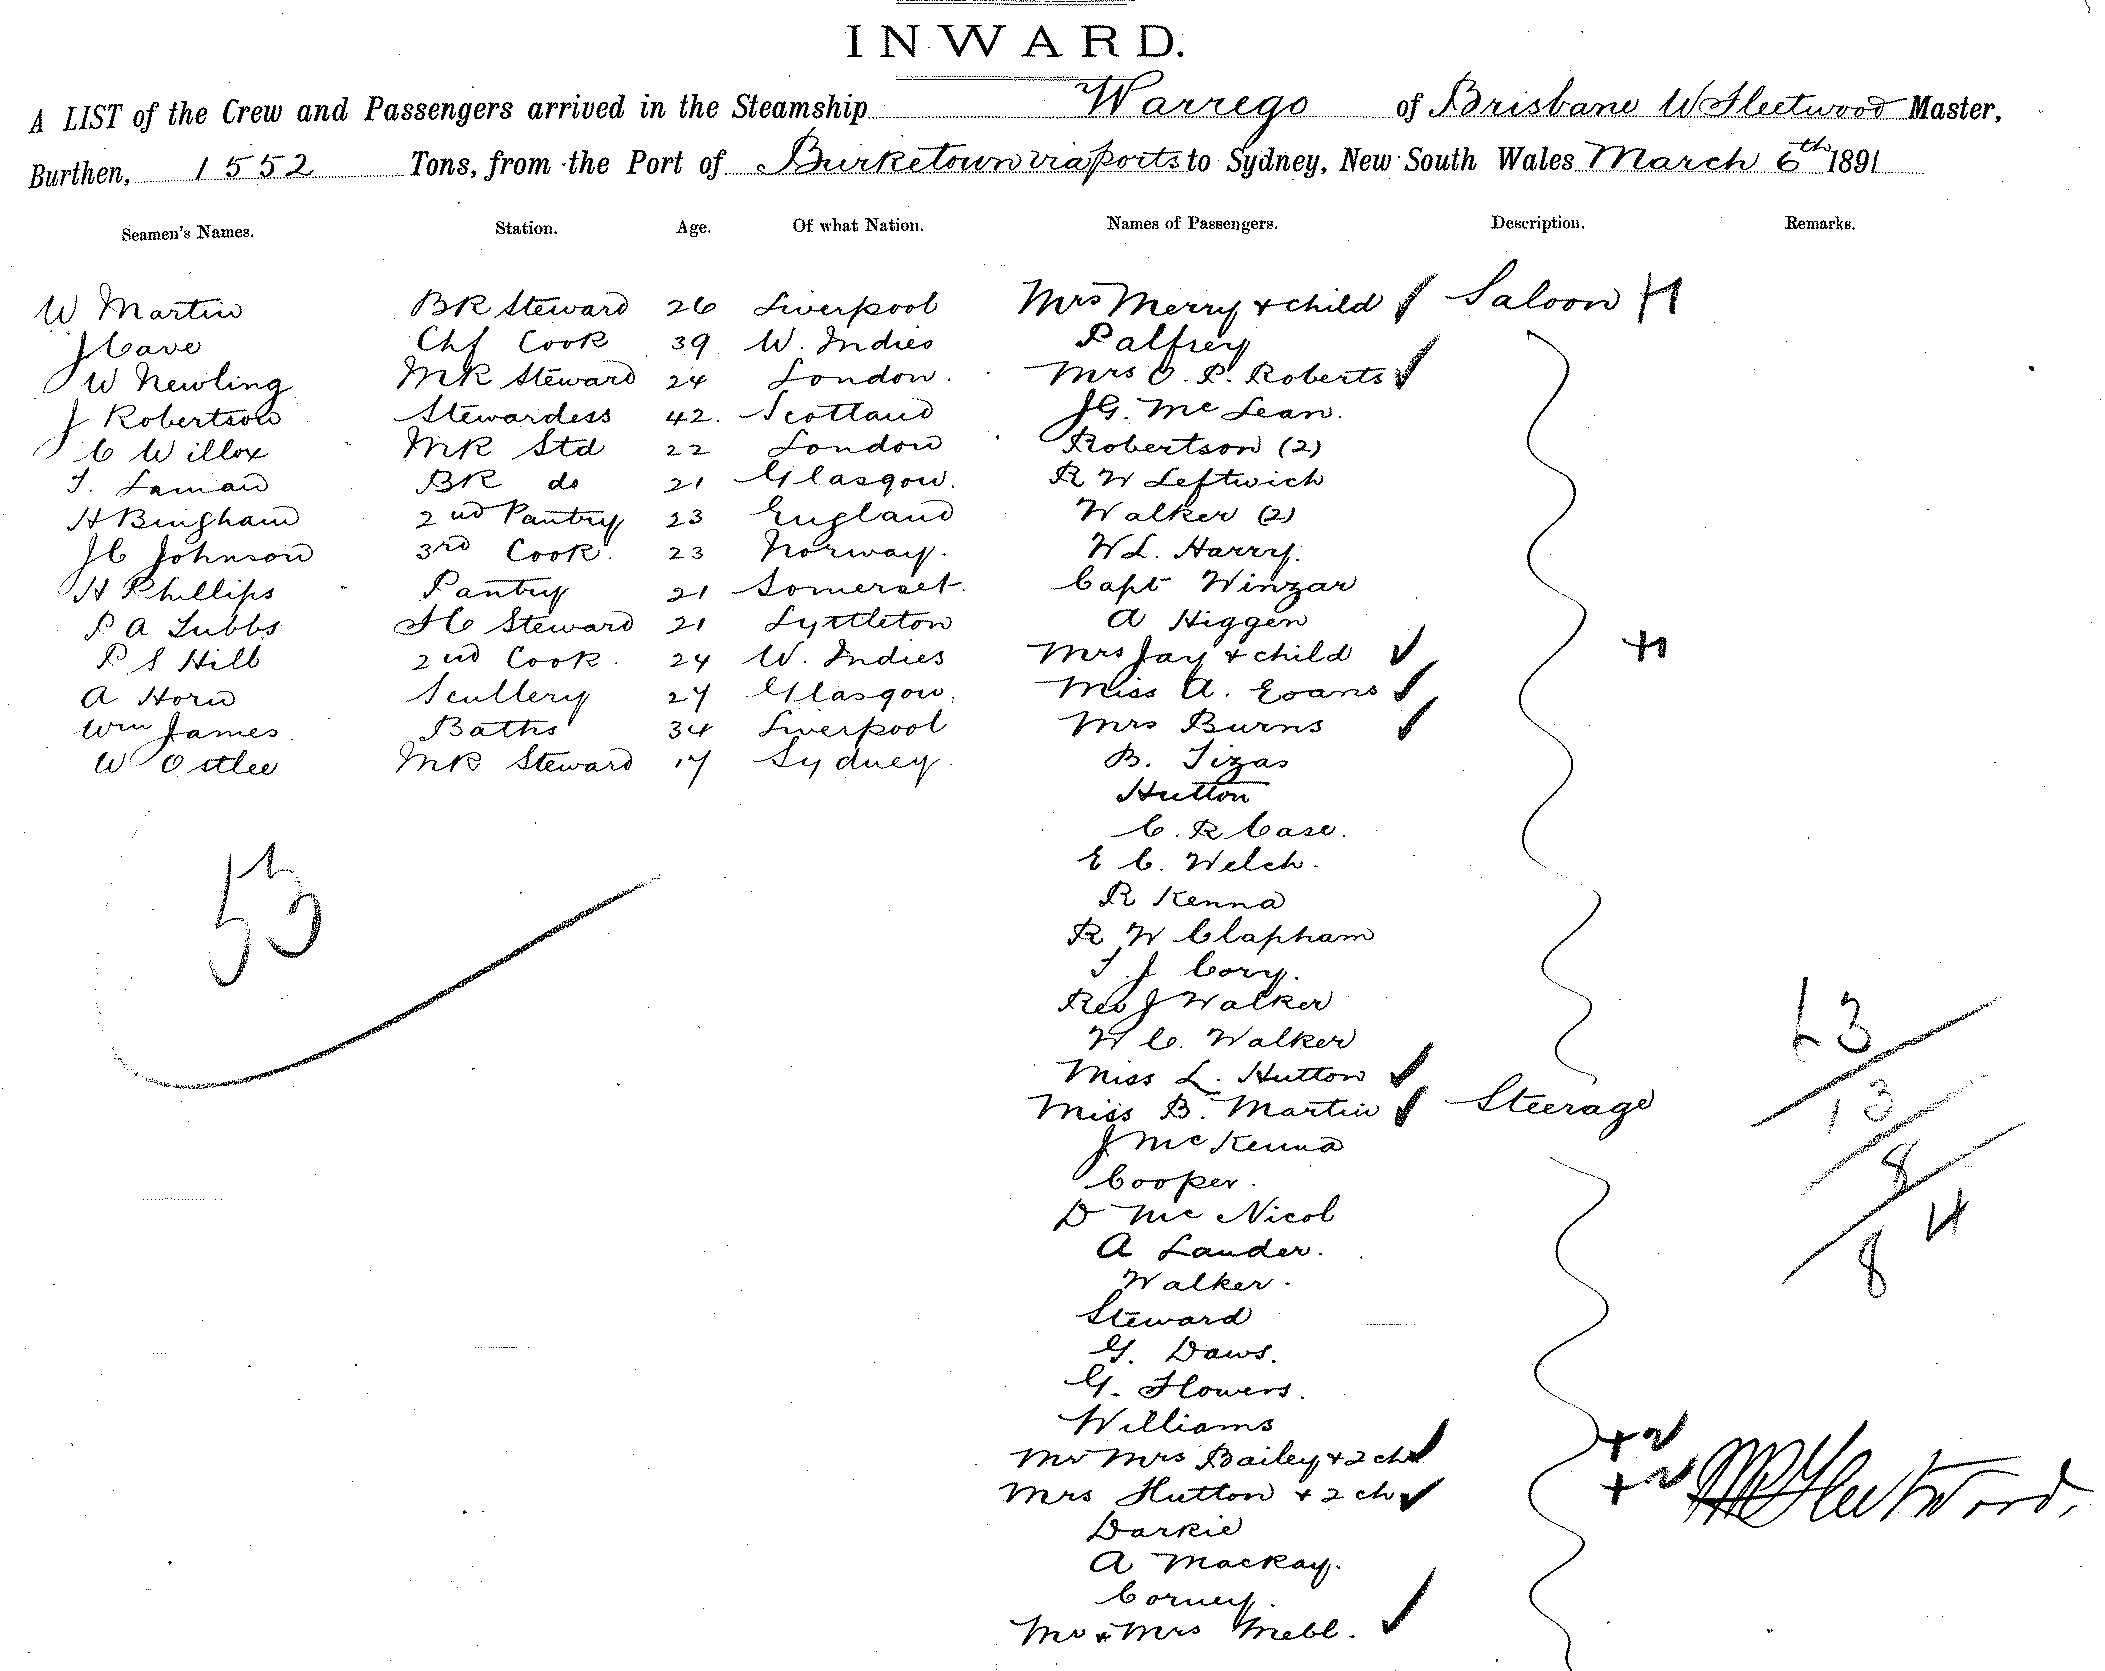 INWARD.
A LIST of the Crew and Passengers arrived in the Steamship Warrego of Brisbane W Fleetwood Master,
Burthen, 1552 Tons, from the Port of Burketown via ports to Sydney, New South Wales March 6th 1891
Seamen's Names. Station. Age. Of what Nation. Names of Passengers. Description. Remarks.
W Martin BR Steward 26 Liverpool Mrs Merry + child Saloon
J Cave Chf Cook 39 W. Indies Palfrey
W Newling MR Steward 24 London. Mrs O. P. Roberts
J Robertson Stewardess 42. Scotland J G. McLean.
C Willox MR Std 22 London Robertson (2)
BR do 21 Glasgow. R W Leftwich
H Bingham 2nd Pantry 23 England Walker (2)
J C Johnson 3rd Cook. 23 Norway. W L. Harry.
H Phillips Pantry 21 Somerset. Capt Winzar
P A Tubbs Steward 21 Lyttleton A Higgen
P S Hill 2nd Cook. 24 W. Indies Mrs Jay + child
A Horn Scullery 27 Glasgow. Miss A. Evans
Wm James Baths 34 Liverpool Mrs Burns
W MR Steward 17 Sydney. B. Tizas
Hutton
C. R Case.
E C. Welch.
R Kenna
R W Clapham
T J Cory.
Rev J Walker
W C. Walker
Miss L. Hutton
Miss B. Martin Steerage
J McKenna
Cooper.
D McNicol
A Lauder.
Walker.
Steward
G. Daws.
G. Flowers.
Williams
Mr Mrs Bailey + 2 ch
Mrs Hutton + 2 ch
Darkie
A Mackay.
Corney.
Mr + Mrs
53
63
13
8
14
8
Fleetwood.